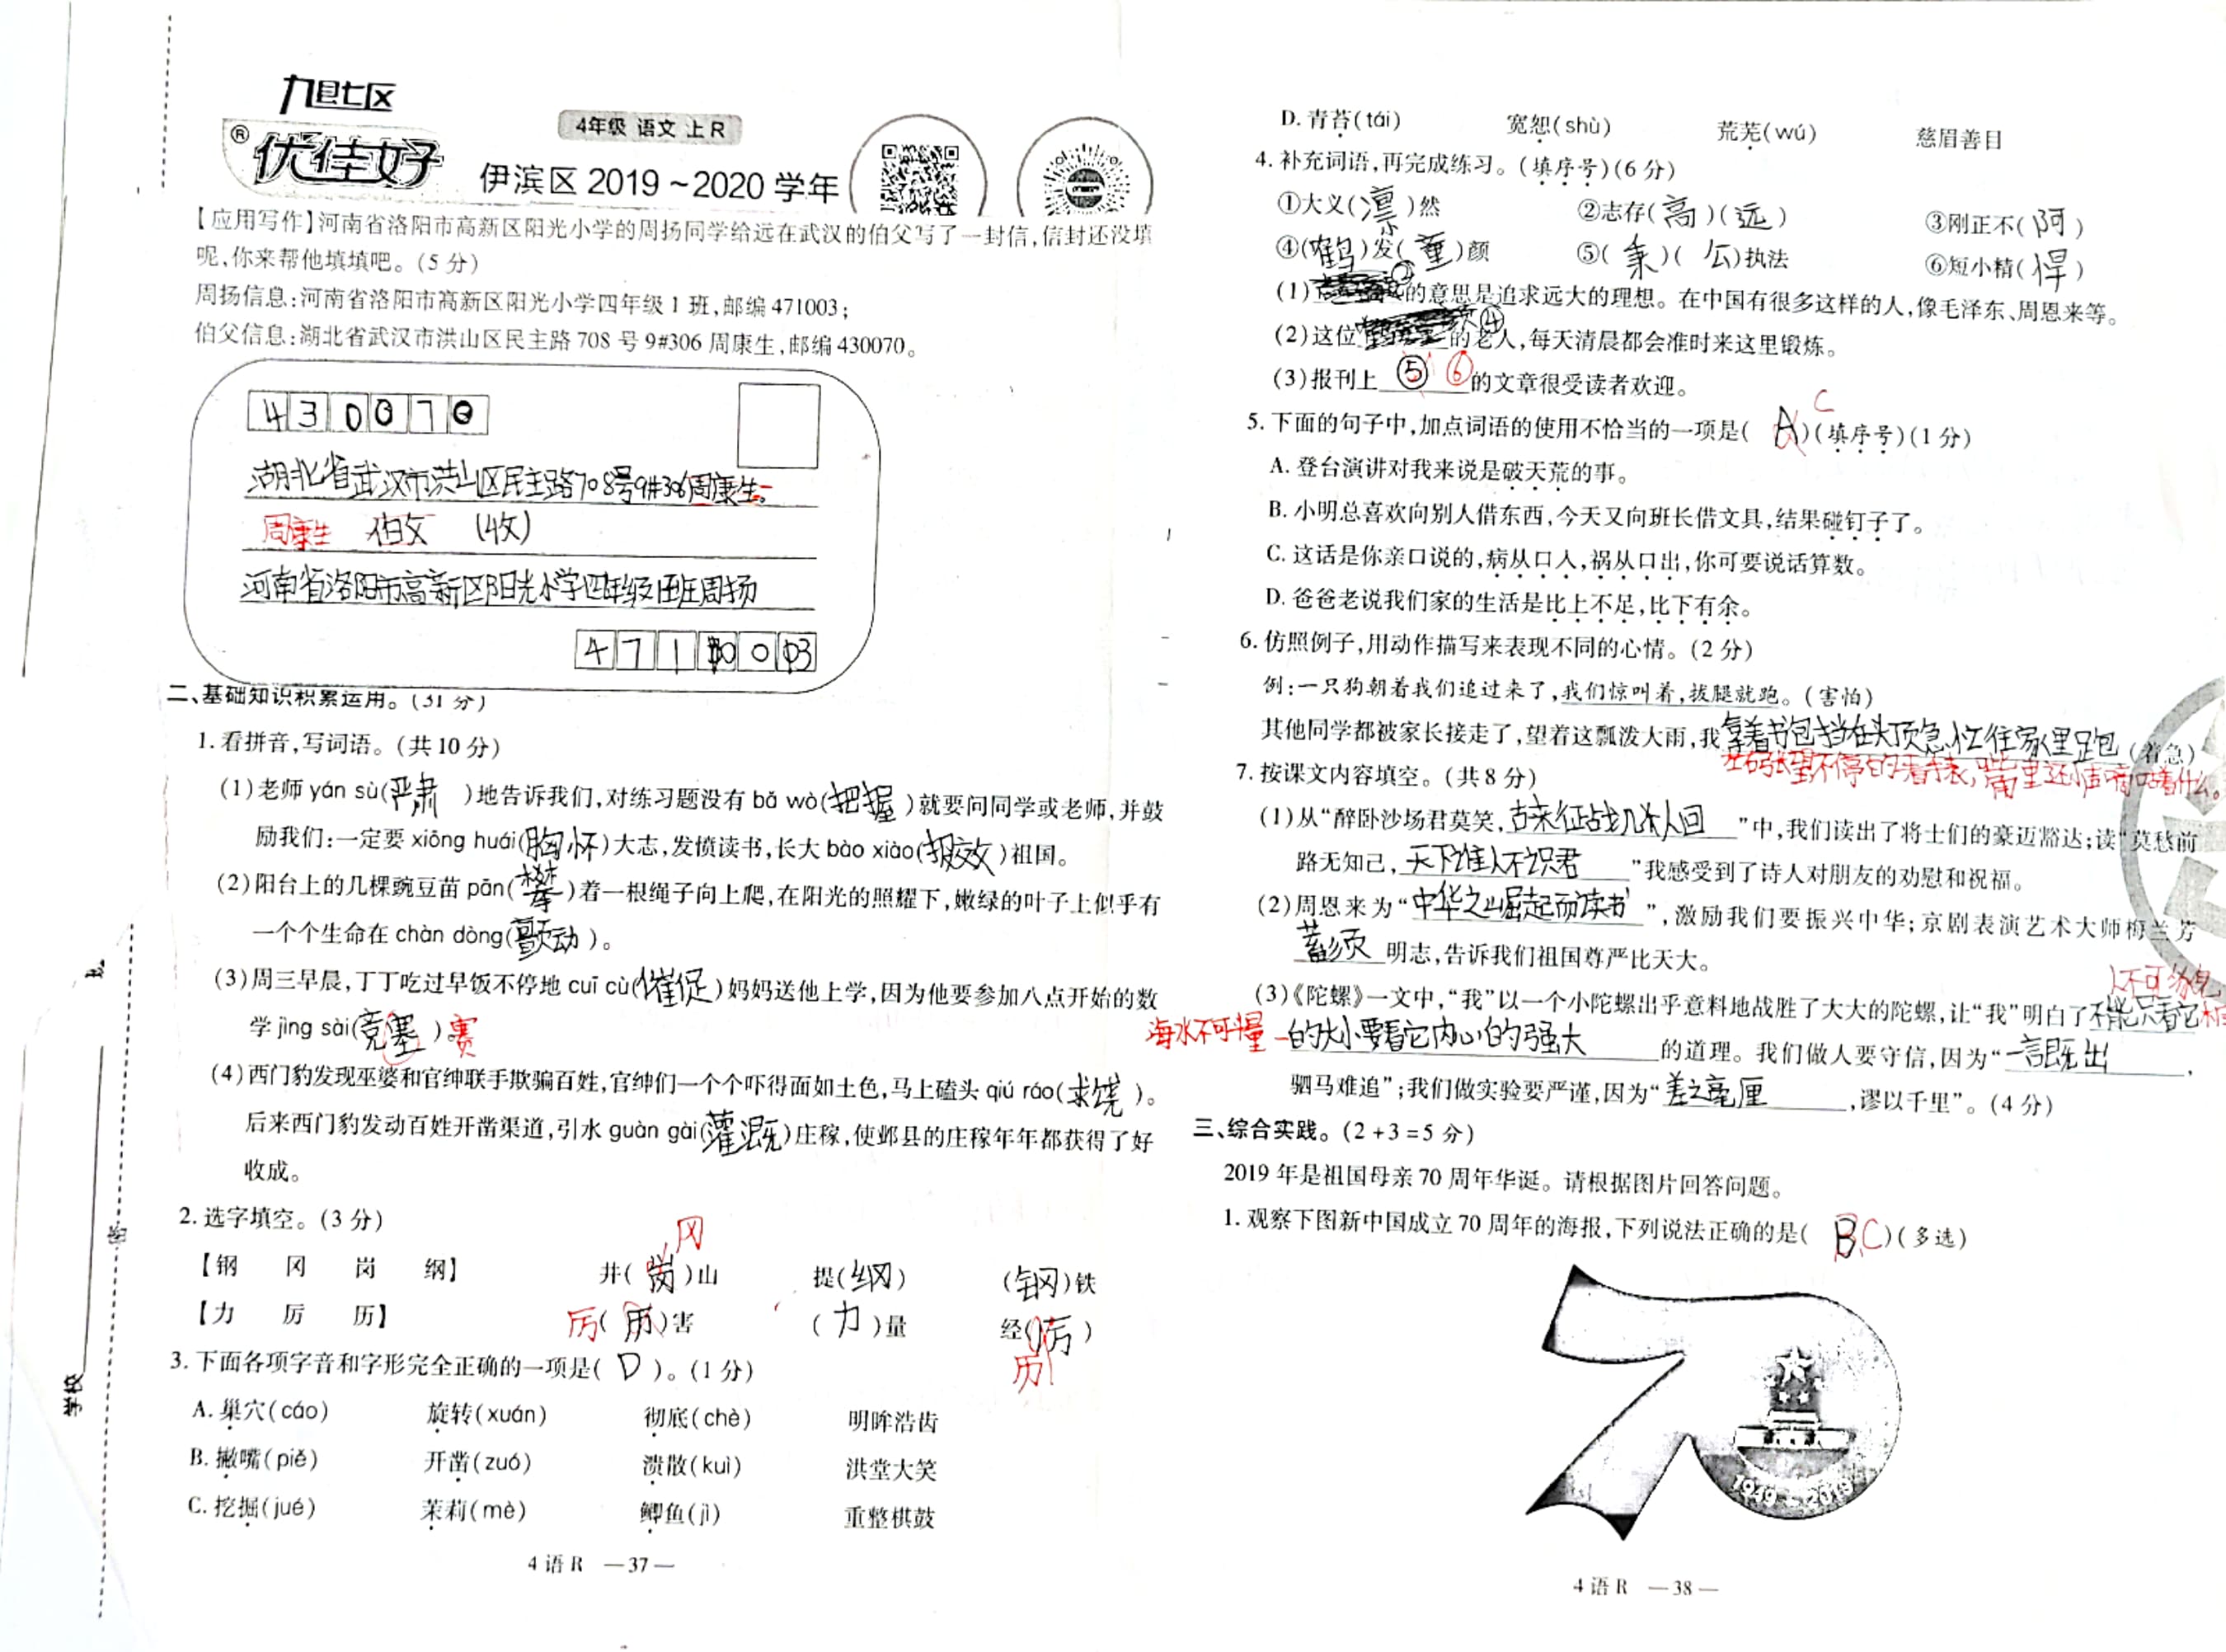 九县七区
优佳好
®
4年级 语文 上 R
伊滨区 2019～2020 学年
【应用写作】河南省洛阳市高新区阳光小学的周扬同学给远在武汉的伯父写了一封信,信封还没填
呢,你来帮他填填吧。(5 分)
周扬信息:河南省洛阳市高新区阳光小学四年级 1 班,邮编 471003;
伯父信息:湖北省武汉市洪山区民主路 708 号 9#306 周康生,邮编 430070。
430070
湖北省武汉市洪山区民主路708号9#306周康生。
周康生 伯父 (收)
河南省洛阳市高新区阳光小学四年级1班周扬
471003
二、基础知识积累运用。(31 分)
1. 看拼音,写词语。(共 10 分)
(1)老师 yán sù(严肃)地告诉我们,对练习题没有 bǎ wò(把握)就要问同学或老师,并鼓
励我们:一定要 xiōng huái(胸怀)大志,发愤读书,长大 bào xiào(报效)祖国。
(2)阳台上的几棵豌豆苗 pān(攀)着一根绳子向上爬,在阳光的照耀下,嫩绿的叶子上似乎有
一个个生命在 chàn dòng(颤动)。
(3)周三早晨,丁丁吃过早饭不停地 cuī cù(催促)妈妈送他上学,因为他要参加八点开始的数
学 jìng sài(竞塞)赛
(4)西门豹发现巫婆和官绅联手欺骗百姓,官绅们一个个吓得面如土色,马上磕头 qiú ráo(求饶)。
后来西门豹发动百姓开凿渠道,引水 guàn gài(灌溉)庄稼,使邺县的庄稼年年都获得了好
收成。
2. 选字填空。(3 分)
冈
【钢 冈 岗 纲】 井(岗)山 提(纲) (钢)铁
【力 厉 历】 厉(历)害 (力)量 经(厉)
历
3. 下面各项字音和字形完全正确的一项是( D )。(1 分)
A. 巢穴(cáo) 旋转(xuán) 彻底(chè) 明眸浩齿
B. 撇嘴(piě) 开凿(zuó) 溃散(kuì) 洪堂大笑
C. 挖掘(jué) 茉莉(mè) 鲫鱼(jì) 重整棋鼓
4 语 R —37—
学校
密
D. 青苔(tái) 宽恕(shù) 荒芜(wú) 慈眉善目
4. 补充词语,再完成练习。(填序号)(6 分)
①大义(凛)然 ②志存(高)(远) ③刚正不(阿)
④(鹤)发(童)颜 ⑤(秉)(公)执法 ⑥短小精(悍)
(1)②的意思是追求远大的理想。在中国有很多这样的人,像毛泽东、周恩来等。
(2)这位④的老人,每天清晨都会准时来这里锻炼。
(3)报刊上⑤ ⑥的文章很受读者欢迎。
C
5. 下面的句子中,加点词语的使用不恰当的一项是( A )(填序号)(1 分)
A. 登台演讲对我来说是破天荒的事。
B. 小明总喜欢向别人借东西,今天又向班长借文具,结果碰钉子了。
C. 这话是你亲口说的,病从口入,祸从口出,你可要说话算数。
D. 爸爸老说我们家的生活是比上不足,比下有余。
6. 仿照例子,用动作描写来表现不同的心情。(2 分)
例:一只狗朝着我们追过来了,我们惊叫着,拔腿就跑。(害怕)
其他同学都被家长接走了,望着这瓢泼大雨,我拿着书包挡在头顶急忙往家里跑(着急)
左右张望不停的看手表,嘴里还小声嘀咕着什么。
7. 按课文内容填空。(共 8 分)
(1)从“醉卧沙场君莫笑,古来征战几人回”中,我们读出了将士们的豪迈豁达;读“莫愁前
路无知己,天下谁人不识君”我感受到了诗人对朋友的劝慰和祝福。
(2)周恩来为“中华之崛起而读书”,激励我们要振兴中华;京剧表演艺术大师梅兰芳
蓄须明志,告诉我们祖国尊严比天大。
人不可貌相
(3)《陀螺》一文中,“我”以一个小陀螺出乎意料地战胜了大大的陀螺,让“我”明白了不能只看它
海水不可斗量 的大小要看它内心的强大的道理。我们做人要守信,因为“一言既出,
驷马难追”;我们做实验要严谨,因为“差之毫厘,谬以千里”。(4 分)
三、综合实践。(2+3=5 分)
2019 年是祖国母亲 70 周年华诞。请根据图片回答问题。
1. 观察下图新中国成立 70 周年的海报,下列说法正确的是( BC )(多选)
70
1949－2019
4 语 R —38—